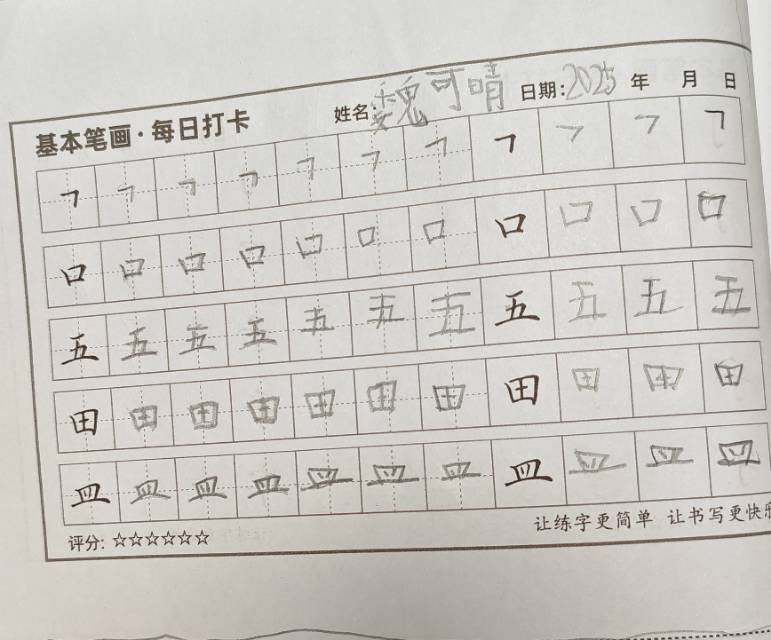 基本笔画·每日打卡 姓名:魏可晴 日期:2025 年 月 日
㇕ ㇕ ㇕ ㇕ ㇕ ㇕ ㇕ ㇕ ㇕ ㇕ ㇕
口 口 口 口 口 口 口 口 口 口 口
五 五 五 五 五 五 五 五 五 五 五
田 田 田 田 田 田 田 田 田 田 田
皿 皿 皿 皿 皿 皿 皿 皿 皿 皿 皿
评分: ☆☆☆☆☆☆ 让练字更简单 让书写更快乐